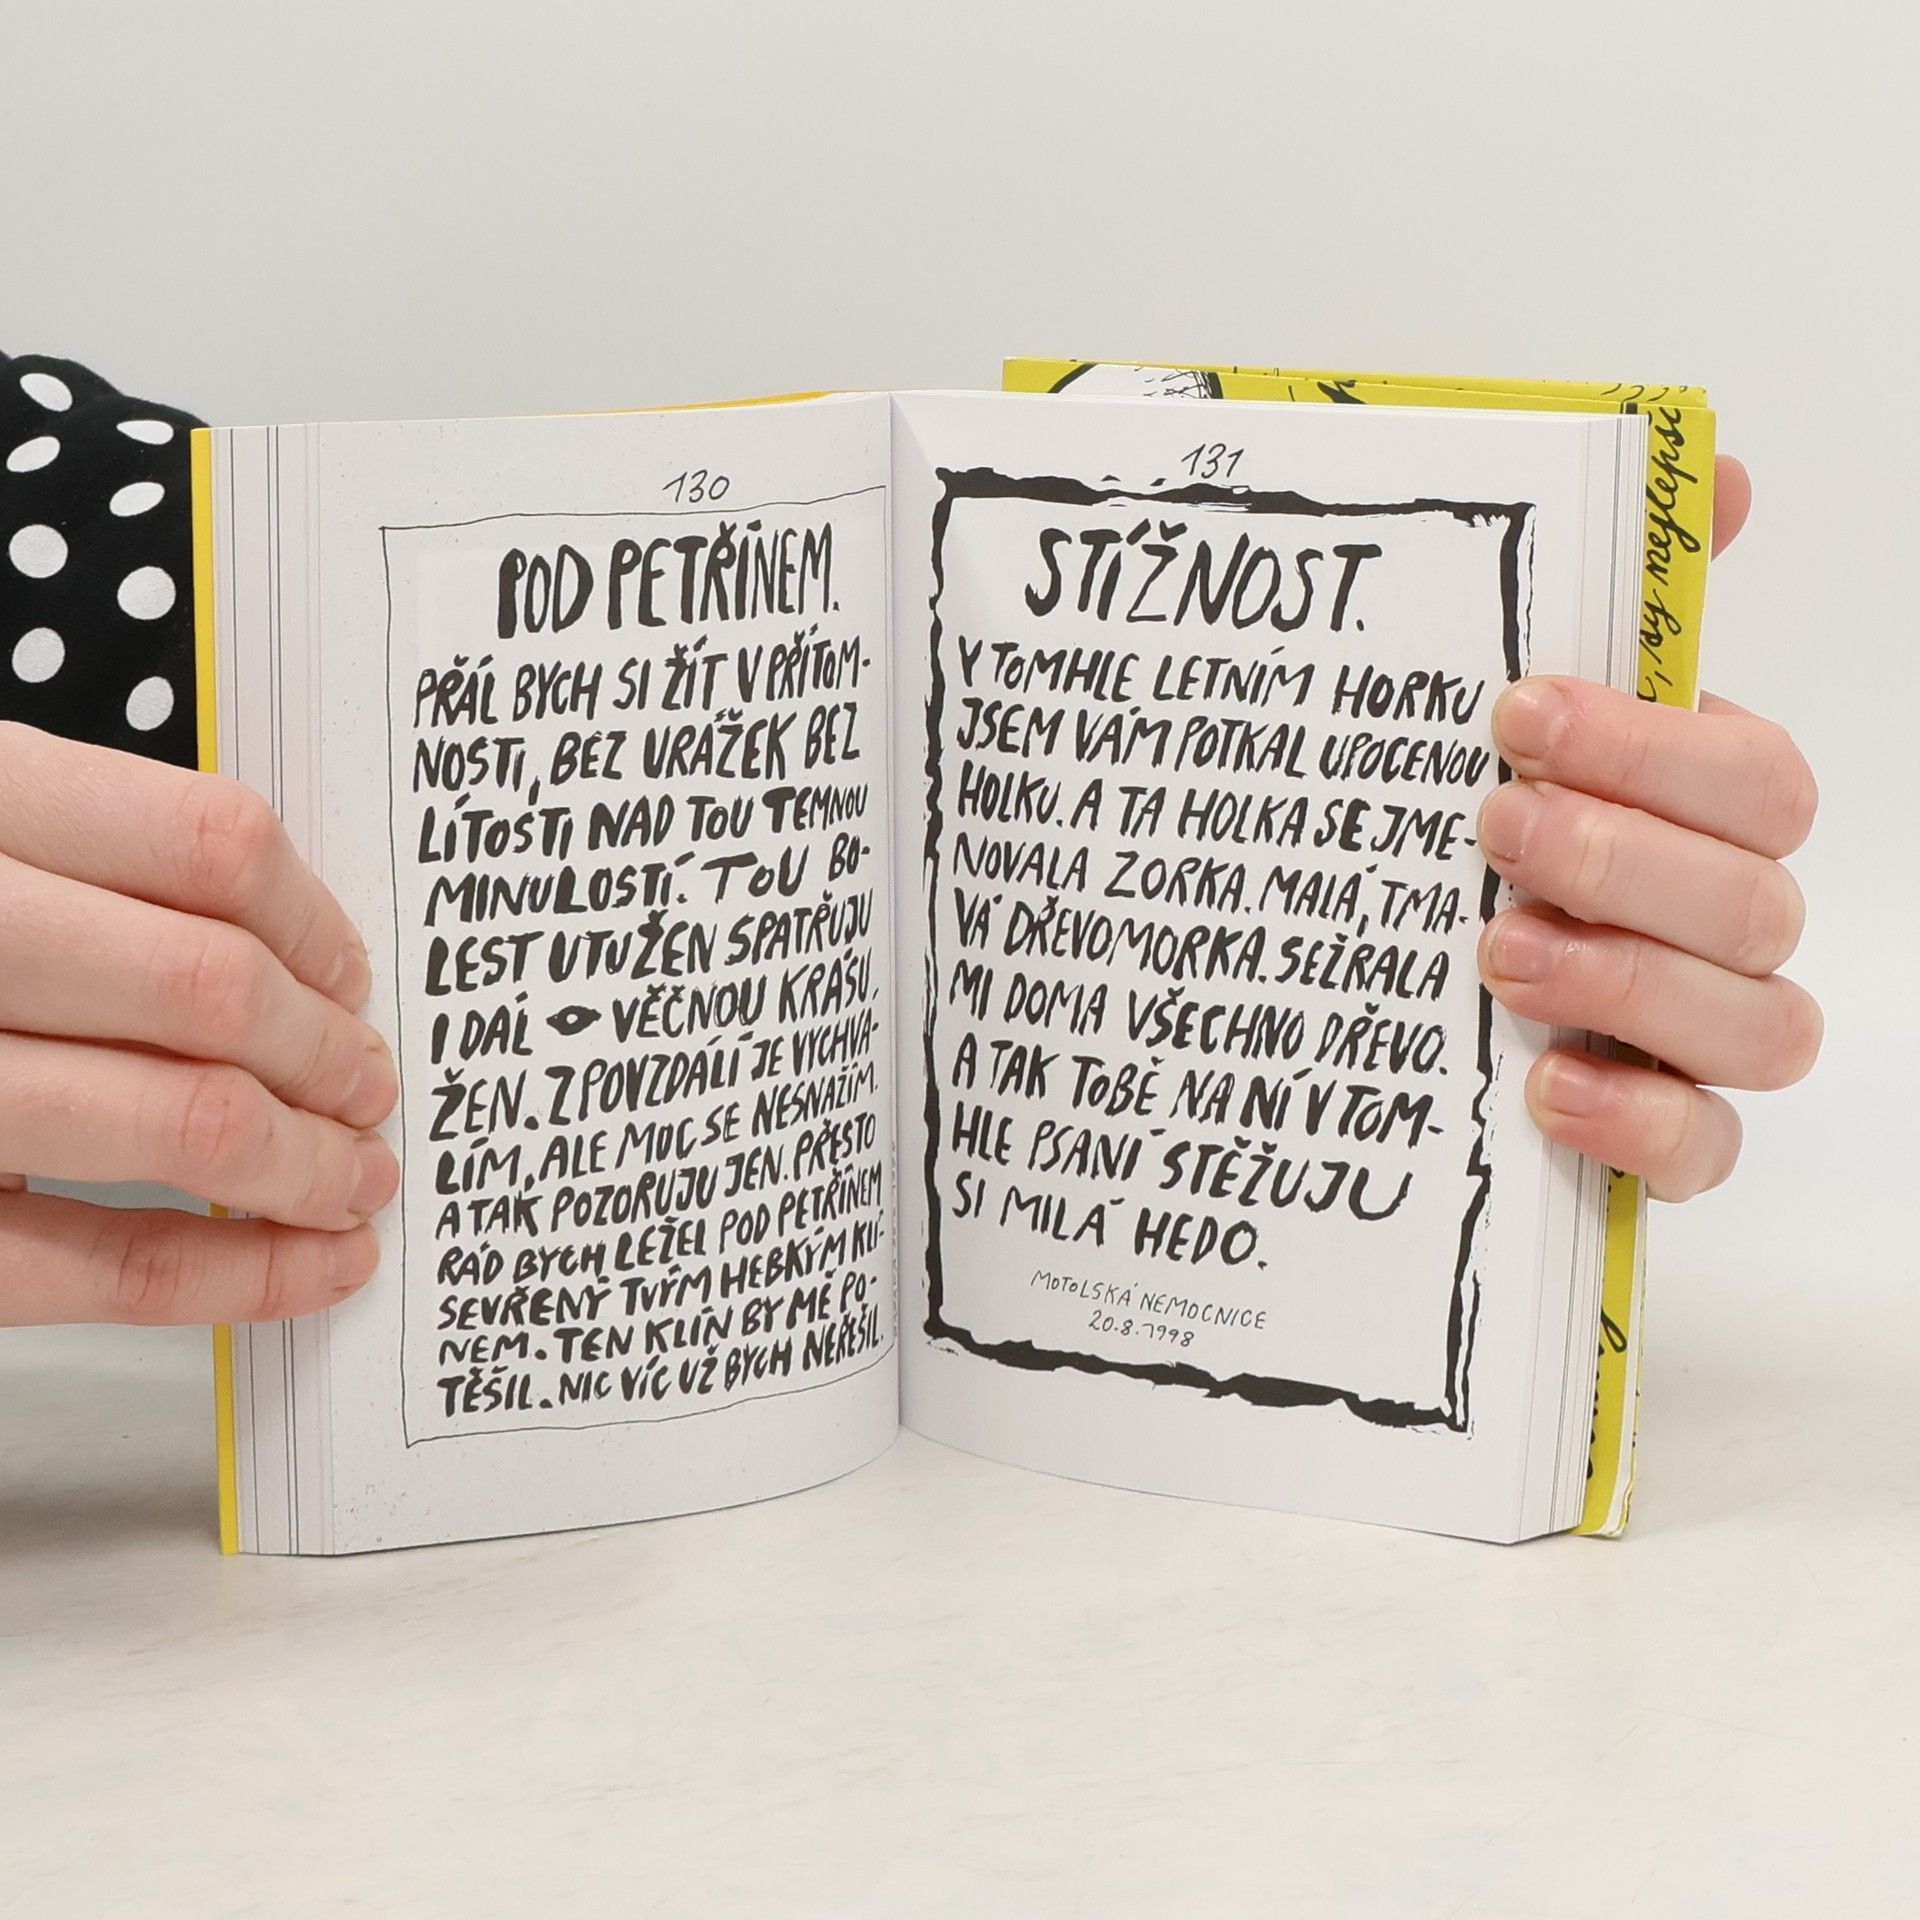 130
POD PETŘÍNEM.
PŘÁL BYCH SI ŽÍT V PŘÍTOM-
NOSTI, BEZ URÁŽEK BEZ
LÍTOSTI NAD TOU TEMNOU
MINULOSTÍ. TOU BO-
LEST UTUŽEN SPATŘUJU
I DÁL VĚČNOU KRÁSU.
ŽEN. Z POVZDÁLÍ JE VYCHVA-
LÍM, ALE MOC SE NESNAŽÍM.
A TAK POZORUJU JEN. PŘESTO
RÁD BYCH LEŽEL POD PETŘÍNEM
SEVŘENÝ TVÝM HEBKÝM KLÍ-
NEM. TEN KLÍN BY MĚ PO-
TĚŠIL. NIC VÍC UŽ BYCH NEŘEŠIL.
131
STÍŽNOST.
V TOMHLE LETNÍM HORKU
JSEM VÁM POTKAL UPOCENOU
HOLKU. A TA HOLKA SE JME-
NOVALA ZORKA. MALÁ, TMA-
VÁ DŘEVOMORKA. SEŽRALA
MI DOMA VŠECHNO DŘEVO.
A TAK TOBĚ NA NÍ V TOM-
HLE PSANÍ STĚŽUJU
SI MILÁ HEDO.
MOTOLSKÁ NEMOCNICE
20.8.1998
, sy nejlepší